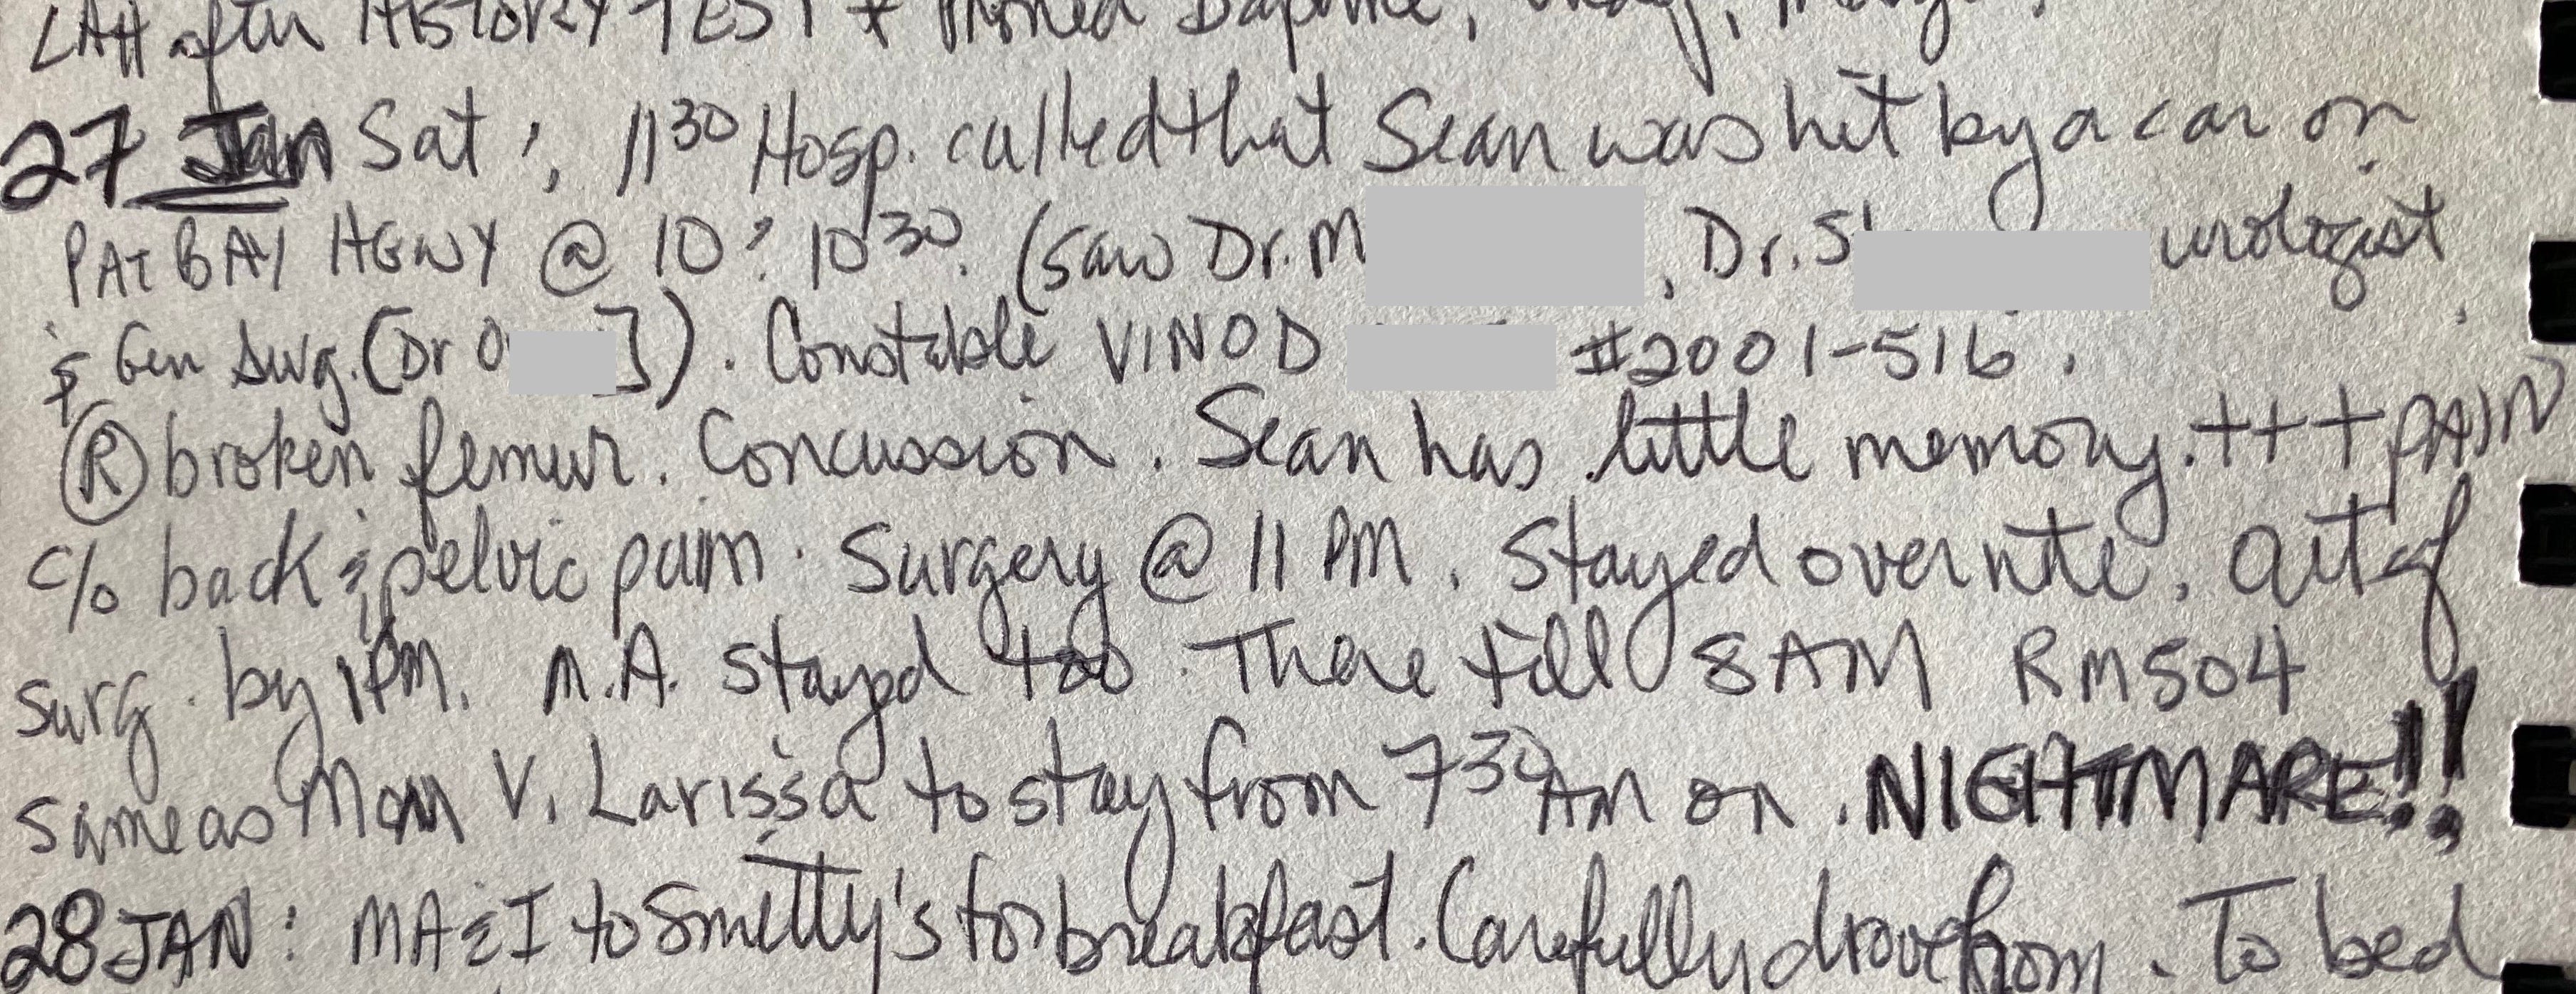 after HISTORY TEST * Phoned Daphne,
27 Jan Sat: 11³⁰ Hosp. called that Sean was hit by a car on
PAT BAY HGWY @ 10? 10³⁰. (Saw Dr. M , Dr. S urologist,
& Gen Surg. [Dr O ]). Constable VINOD #2001-516.
Ⓡ broken femur. Concussion. Sean has little memory. +++ PAIN
c/o back & pelvic pain. Surgery @ 11 PM. Stayed overnite. Out of
surg. by 1PM. M.A. stayed too. There till 8AM RM 504
same as Mom V. Larissa to stay from 7³⁰ AM on. NIGHTMARE!!
28 JAN: MA & I to Smitty's for breakfast. Carefully drove hom. To bed